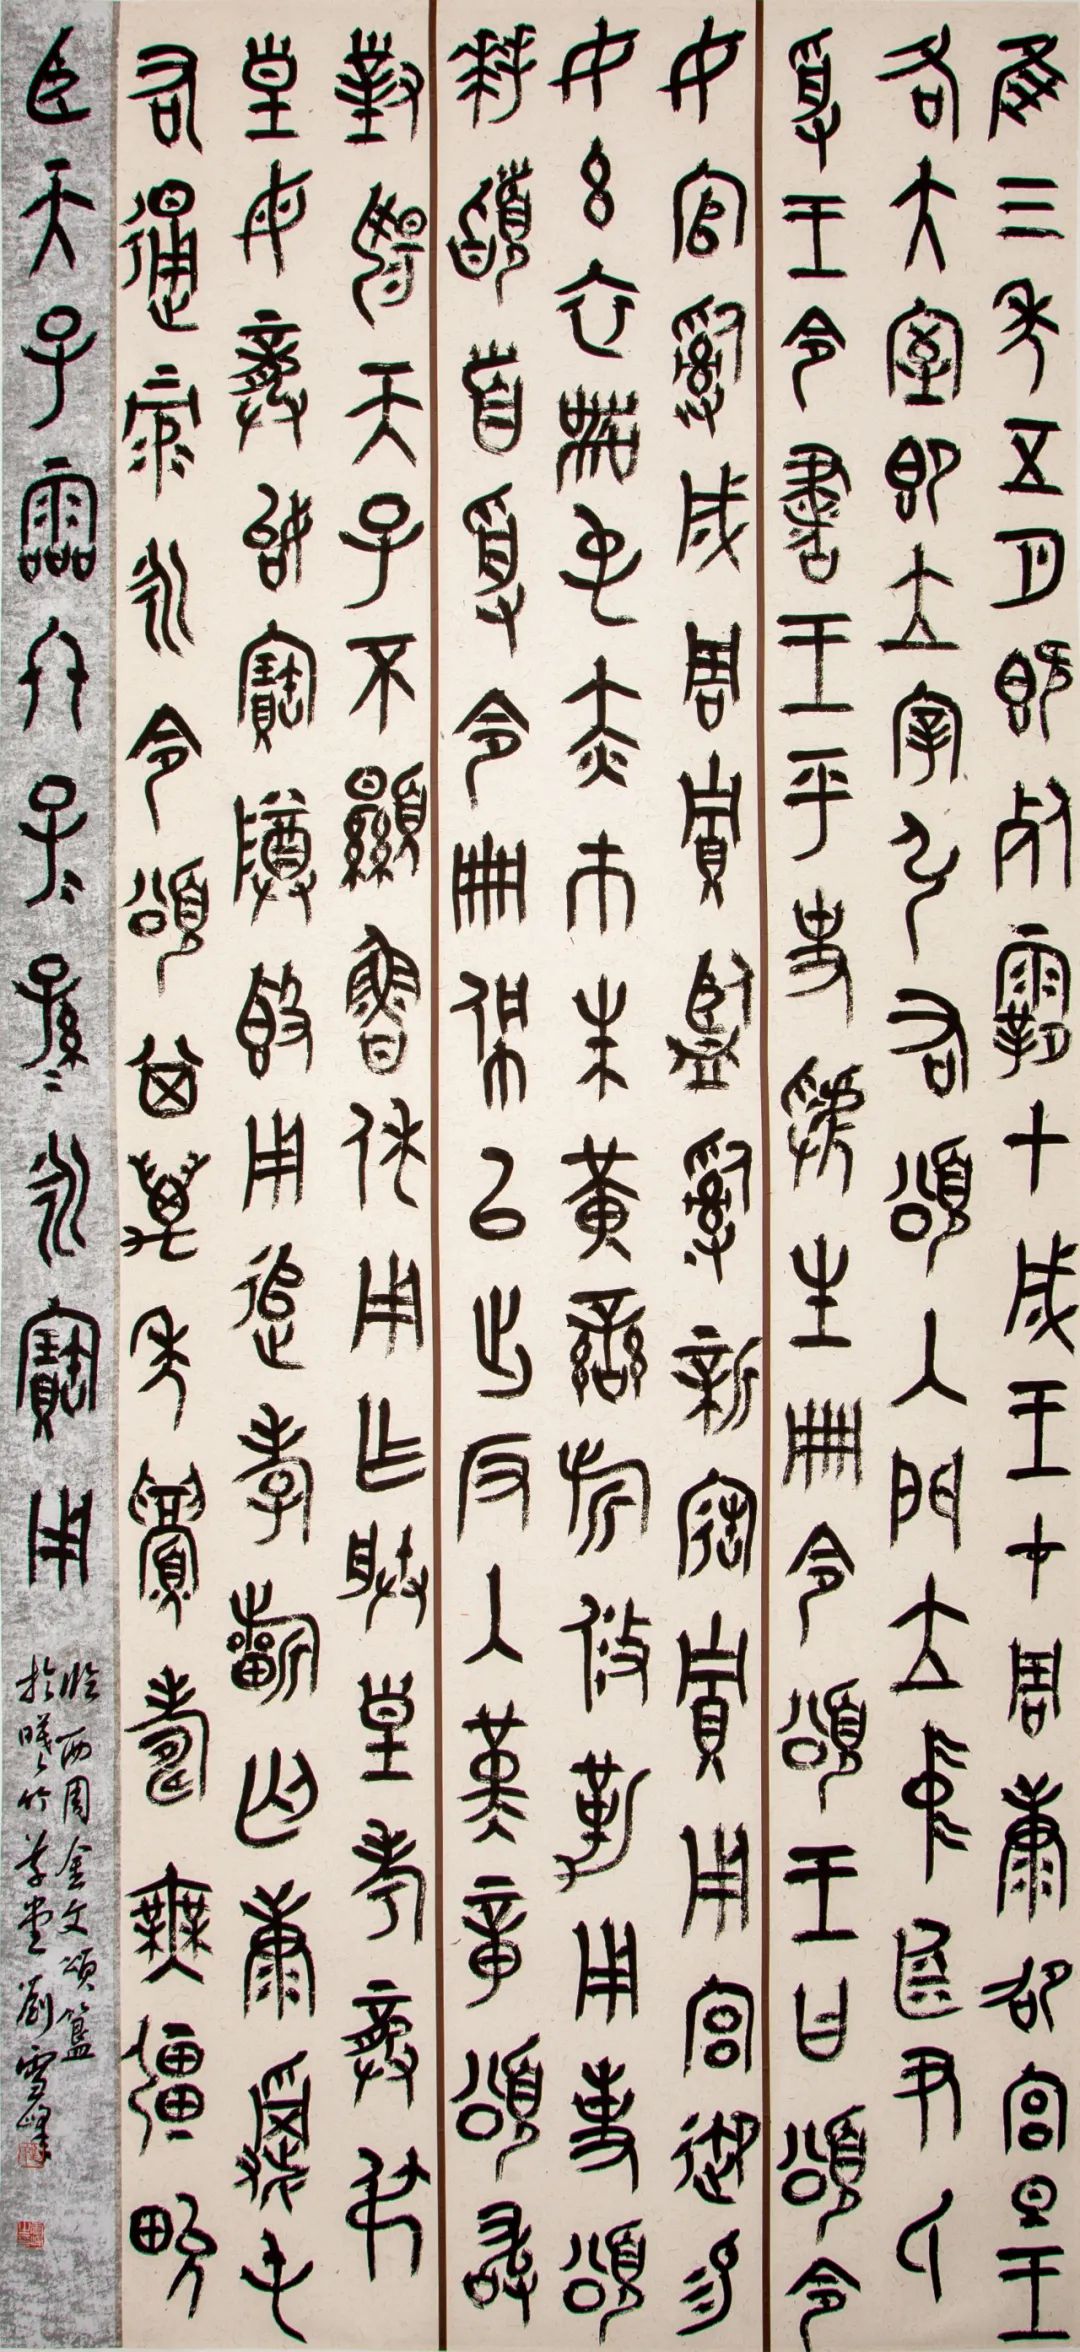 隹三年五月既死霸甲戌王才周康卲宮旦王
各大室即立宰弘右頌入門立中廷尹氏
受王令書王乎史虢生冊令頌王曰頌令
女官𤔲成周貯監𤔲新造貯用宮御易
女玄衣黹屯赤市朱黃䜌旂攸勒用事頌
拜䭫首受令冊佩以出反入堇章頌敢
對揚天子不顯魯休用乍朕皇考龏弔
皇母龏姒寶尊簋用追孝祈匄康𩛥屯
右通彔永令頌其萬年眉壽無疆畯
臣天子霝冬子〻孫〻永寶用
臨西周金文頌簋
於曦竹草堂劉雪峰